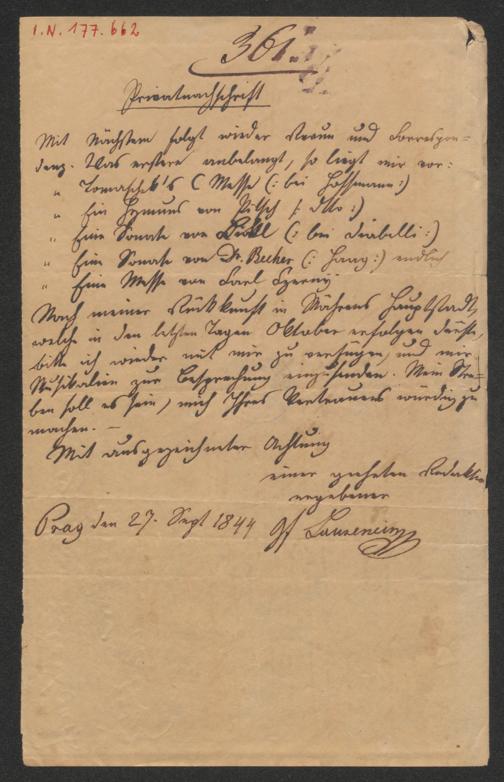 I.N. 177.662
361.
Privatnachschrift
Mit Nächstem folgt wieder Revue und Correspon=
denz. Was erstere anbelangt, so liegt mir vor:
" Tomaschek's C Messe (: bei Hoffmann :)
" Ein Hymnus von Pitsch (: dtto :)
" Eine Sonate von (: bei Diabelli :)
" Eine Sonate von Dr. Becher (: Haag :) endlich
" Eine Messe von Carl Czerny
Nach meiner Rückkunft in Mährens Hauptstadt,
welche in den letzten Tagen Oktober erfolgen dürfte,
bitte ich wieder mit mir zu verfügen, und mir
Musikalien zur Besprechung einzusenden. Mein Stre=
ben soll es sein, mich Ihres Vertrauens würdig zu
machen. –
Mit ausgezeichneter Achtung
einer geehrten Redaktion
ergebener
Prag den 27. Sept 1844